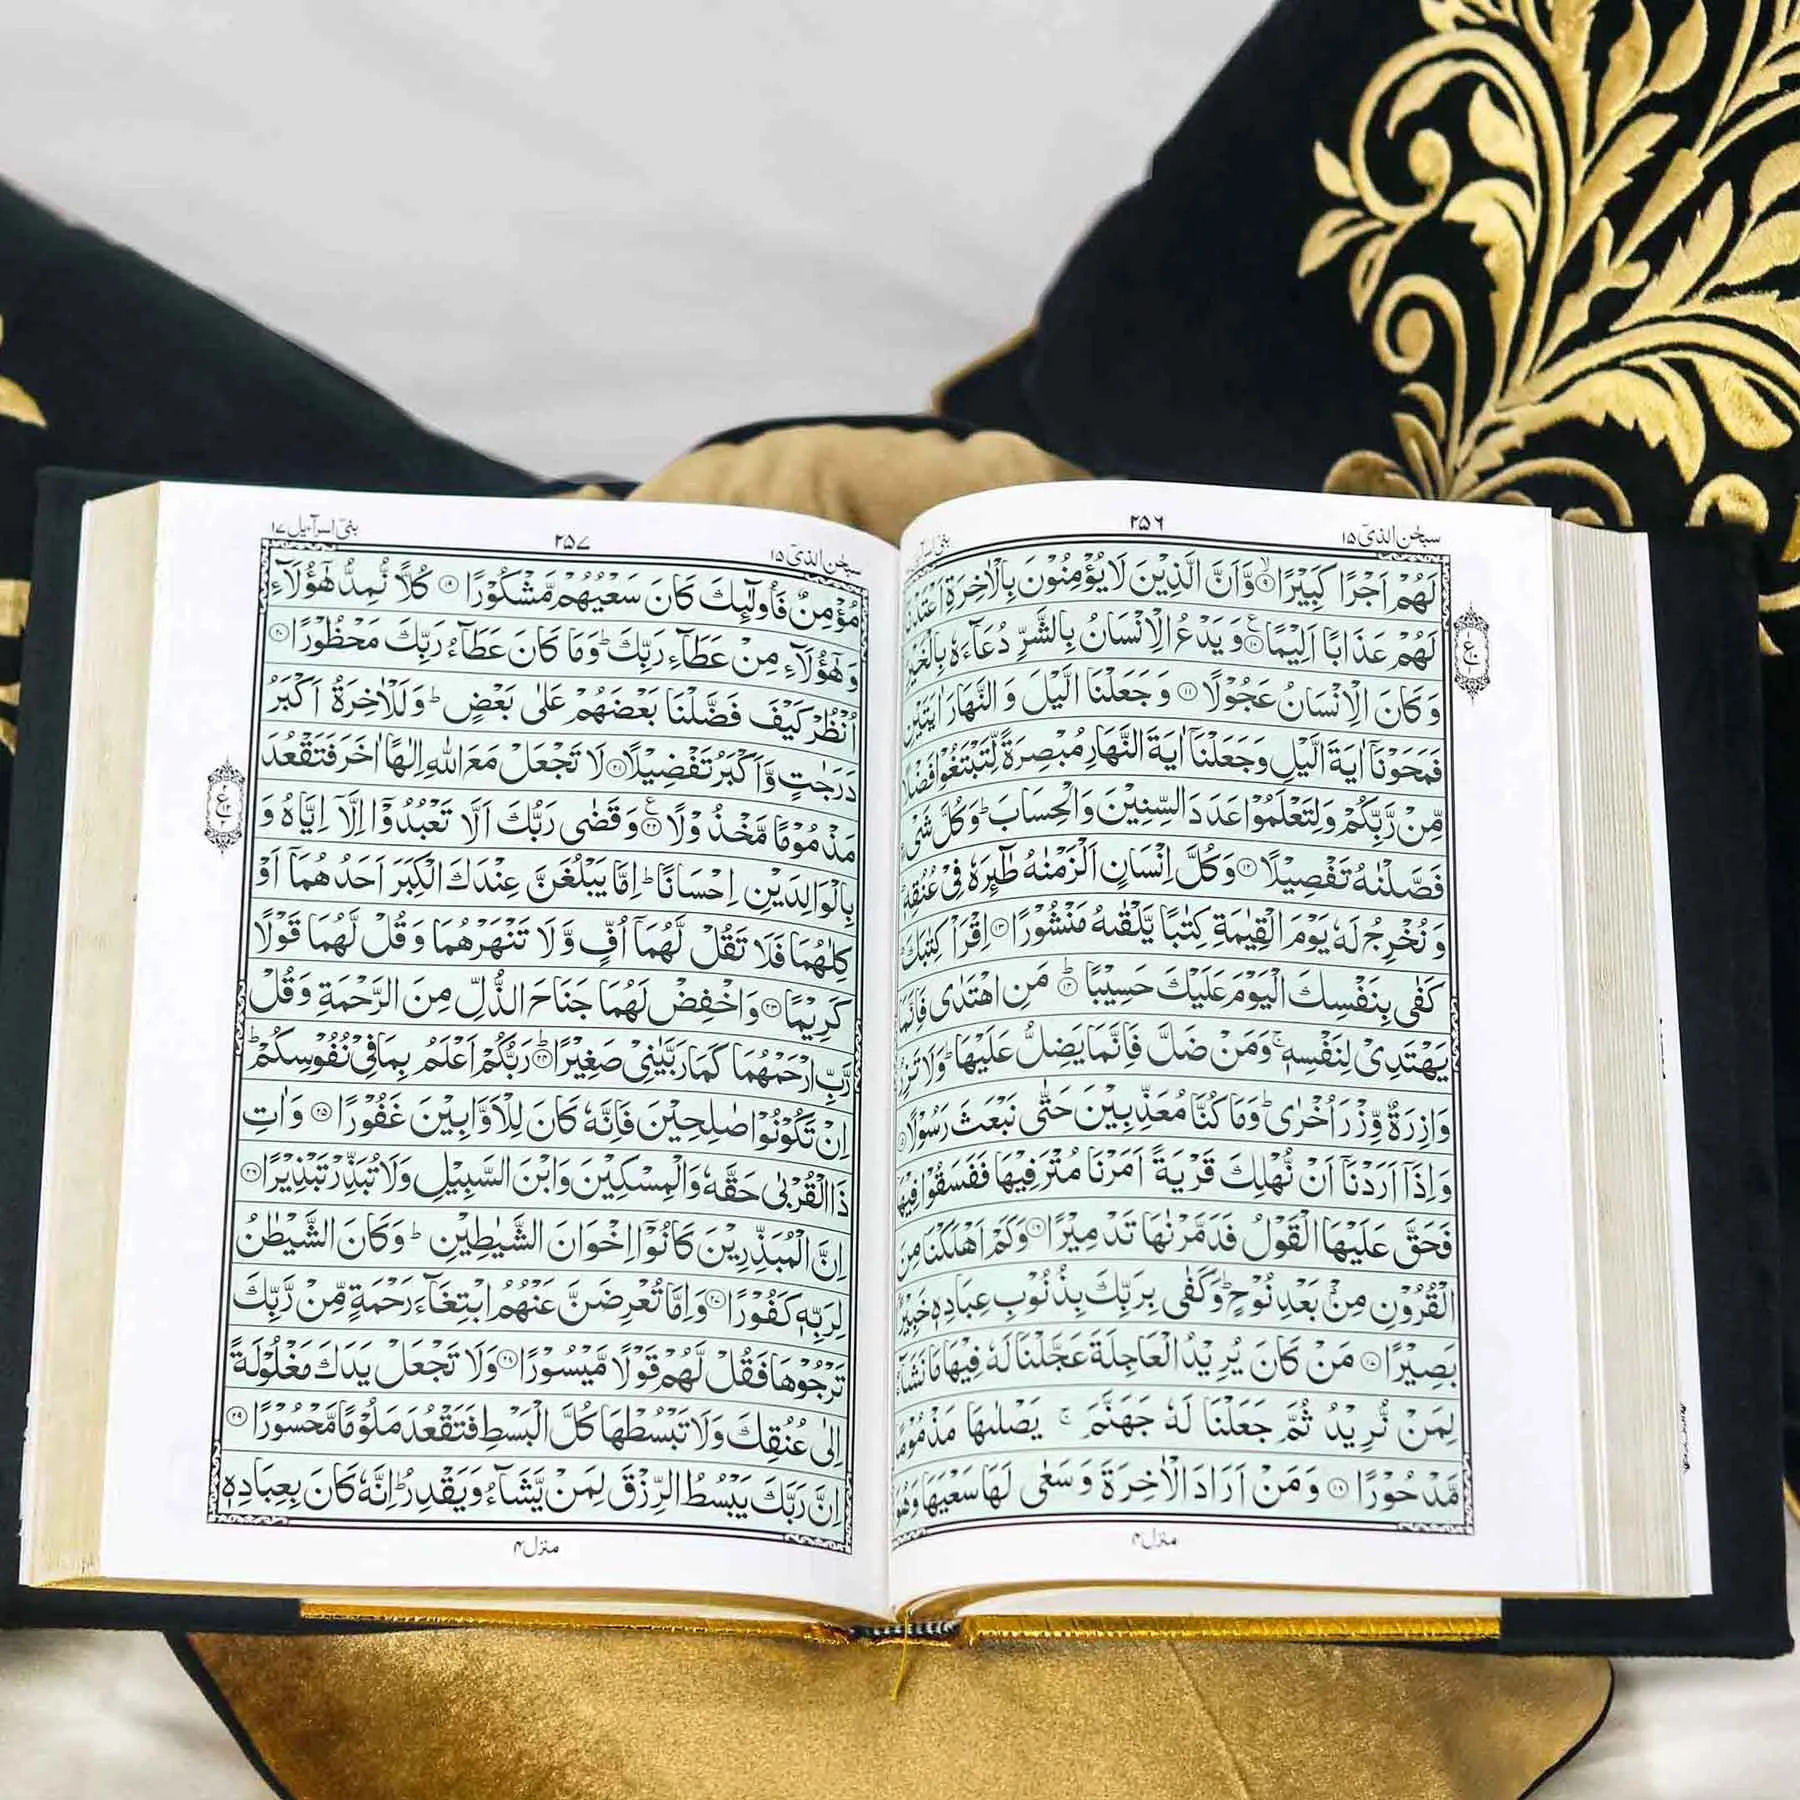 سبحٰن الذیٓ ۱۵
۲۵۶
بنیٓ اسرآءیل
لَهُمْ اَجْرًا كَبِيْرًا ۙ۹ وَّاَنَّ الَّذِيْنَ لَا يُؤْمِنُوْنَ بِالْاٰخِرَةِ
لَهُمْ عَذَابًا اَلِيْمًا ۱۰ وَيَدْعُ الْاِنْسَانُ بِالشَّرِّ دُعَآءَهٗ بِالْخَيْرِ
وَكَانَ الْاِنْسَانُ عَجُوْلًا ۱۱ وَجَعَلْنَا الَّيْلَ وَالنَّهَارَ اٰيَتَيْنِ
فَمَحَوْنَاۤ اٰيَةَ الَّيْلِ وَجَعَلْنَاۤ اٰيَةَ النَّهَارِ مُبْصِرَةً لِّتَبْتَغُوْا فَضْلًا
مِّنْ رَّبِّكُمْ وَلِتَعْلَمُوْا عَدَدَ السِّنِيْنَ وَالْحِسَابَ ؕ وَكُلَّ شَيْءٍ
فَصَّلْنٰهُ تَفْصِيْلًا ۱۲ وَكُلَّ اِنْسَانٍ اَلْزَمْنٰهُ طٰٓئِرَهٗ فِيْ عُنُقِهٖ ؕ
وَنُخْرِجُ لَهٗ يَوْمَ الْقِيٰمَةِ كِتٰبًا يَّلْقٰىهُ مَنْشُوْرًا ۱۳ اِقْرَاْ كِتٰبَكَ ؕ
كَفٰى بِنَفْسِكَ الْيَوْمَ عَلَيْكَ حَسِيْبًا ؕ۱۴ مَنِ اهْتَدٰى فَاِنَّمَا
يَهْتَدِيْ لِنَفْسِهٖ ۚ وَمَنْ ضَلَّ فَاِنَّمَا يَضِلُّ عَلَيْهَا ؕ وَلَا تَزِرُ
وَازِرَةٌ وِّزْرَ اُخْرٰى ؕ وَمَا كُنَّا مُعَذِّبِيْنَ حَتّٰى نَبْعَثَ رَسُوْلًا
وَاِذَاۤ اَرَدْنَاۤ اَنْ نُّهْلِكَ قَرْيَةً اَمَرْنَا مُتْرَفِيْهَا فَفَسَقُوْا فِيْهَا
فَحَقَّ عَلَيْهَا الْقَوْلُ فَدَمَّرْنٰهَا تَدْمِيْرًا ۱۶ وَكَمْ اَهْلَكْنَا مِنَ
الْقُرُوْنِ مِنْۢ بَعْدِ نُوْحٍ ؕ وَكَفٰى بِرَبِّكَ بِذُنُوْبِ عِبَادِهٖ خَبِيْرًۢا
بَصِيْرًا ۱۷ مَنْ كَانَ يُرِيْدُ الْعَاجِلَةَ عَجَّلْنَا لَهٗ فِيْهَا مَا نَشَآءُ
لِمَنْ نُّرِيْدُ ثُمَّ جَعَلْنَا لَهٗ جَهَنَّمَ ۚ يَصْلٰىهَا مَذْمُوْمًا
مَّدْحُوْرًا ۱۸ وَمَنْ اَرَادَ الْاٰخِرَةَ وَسَعٰى لَهَا سَعْيَهَا وَهُوَ
منزل ۴
سبحٰن الذیٓ ۱۵
۲۵۷
بنیٓ اسرآءیل ۱۷
مُؤْمِنٌ فَاُولٰٓئِكَ كَانَ سَعْيُهُمْ مَّشْكُوْرًا ۱۹ كُلًّا نُّمِدُّ هٰۤؤُلَآءِ
وَهٰۤؤُلَآءِ مِنْ عَطَآءِ رَبِّكَ ؕ وَمَا كَانَ عَطَآءُ رَبِّكَ مَحْظُوْرًا ۲۰
اُنْظُرْ كَيْفَ فَضَّلْنَا بَعْضَهُمْ عَلٰى بَعْضٍ ؕ وَلَلْاٰخِرَةُ اَكْبَرُ
دَرَجٰتٍ وَّاَكْبَرُ تَفْضِيْلًا ۲۱ لَا تَجْعَلْ مَعَ اللّٰهِ اِلٰهًا اٰخَرَ فَتَقْعُدَ
مَذْمُوْمًا مَّخْذُوْلًا ۲۲ وَقَضٰى رَبُّكَ اَلَّا تَعْبُدُوْۤا اِلَّاۤ اِيَّاهُ وَ
بِالْوَالِدَيْنِ اِحْسَانًا ؕ اِمَّا يَبْلُغَنَّ عِنْدَكَ الْكِبَرَ اَحَدُهُمَاۤ اَوْ
كِلٰهُمَا فَلَا تَقُلْ لَّهُمَاۤ اُفٍّ وَّلَا تَنْهَرْهُمَا وَقُلْ لَّهُمَا قَوْلًا
كَرِيْمًا ۲۳ وَاخْفِضْ لَهُمَا جَنَاحَ الذُّلِّ مِنَ الرَّحْمَةِ وَقُلْ
رَّبِّ ارْحَمْهُمَا كَمَا رَبَّيٰنِيْ صَغِيْرًا ؕ۲۴ رَبُّكُمْ اَعْلَمُ بِمَا فِيْ نُفُوْسِكُمْ ؕ
اِنْ تَكُوْنُوْا صٰلِحِيْنَ فَاِنَّهٗ كَانَ لِلْاَوَّابِيْنَ غَفُوْرًا ۲۵ وَاٰتِ
ذَا الْقُرْبٰى حَقَّهٗ وَالْمِسْكِيْنَ وَابْنَ السَّبِيْلِ وَلَا تُبَذِّرْ تَبْذِيْرًا ۲۶
اِنَّ الْمُبَذِّرِيْنَ كَانُوْۤا اِخْوَانَ الشَّيٰطِيْنِ ؕ وَكَانَ الشَّيْطٰنُ
لِرَبِّهٖ كَفُوْرًا ۲۷ وَاِمَّا تُعْرِضَنَّ عَنْهُمُ ابْتِغَآءَ رَحْمَةٍ مِّنْ رَّبِّكَ
تَرْجُوْهَا فَقُلْ لَّهُمْ قَوْلًا مَّيْسُوْرًا ۲۸ وَلَا تَجْعَلْ يَدَكَ مَغْلُوْلَةً
اِلٰى عُنُقِكَ وَلَا تَبْسُطْهَا كُلَّ الْبَسْطِ فَتَقْعُدَ مَلُوْمًا مَّحْسُوْرًا ۲۹
اِنَّ رَبَّكَ يَبْسُطُ الرِّزْقَ لِمَنْ يَّشَآءُ وَيَقْدِرُ ؕ اِنَّهٗ كَانَ بِعِبَادِهٖ
منزل ۴